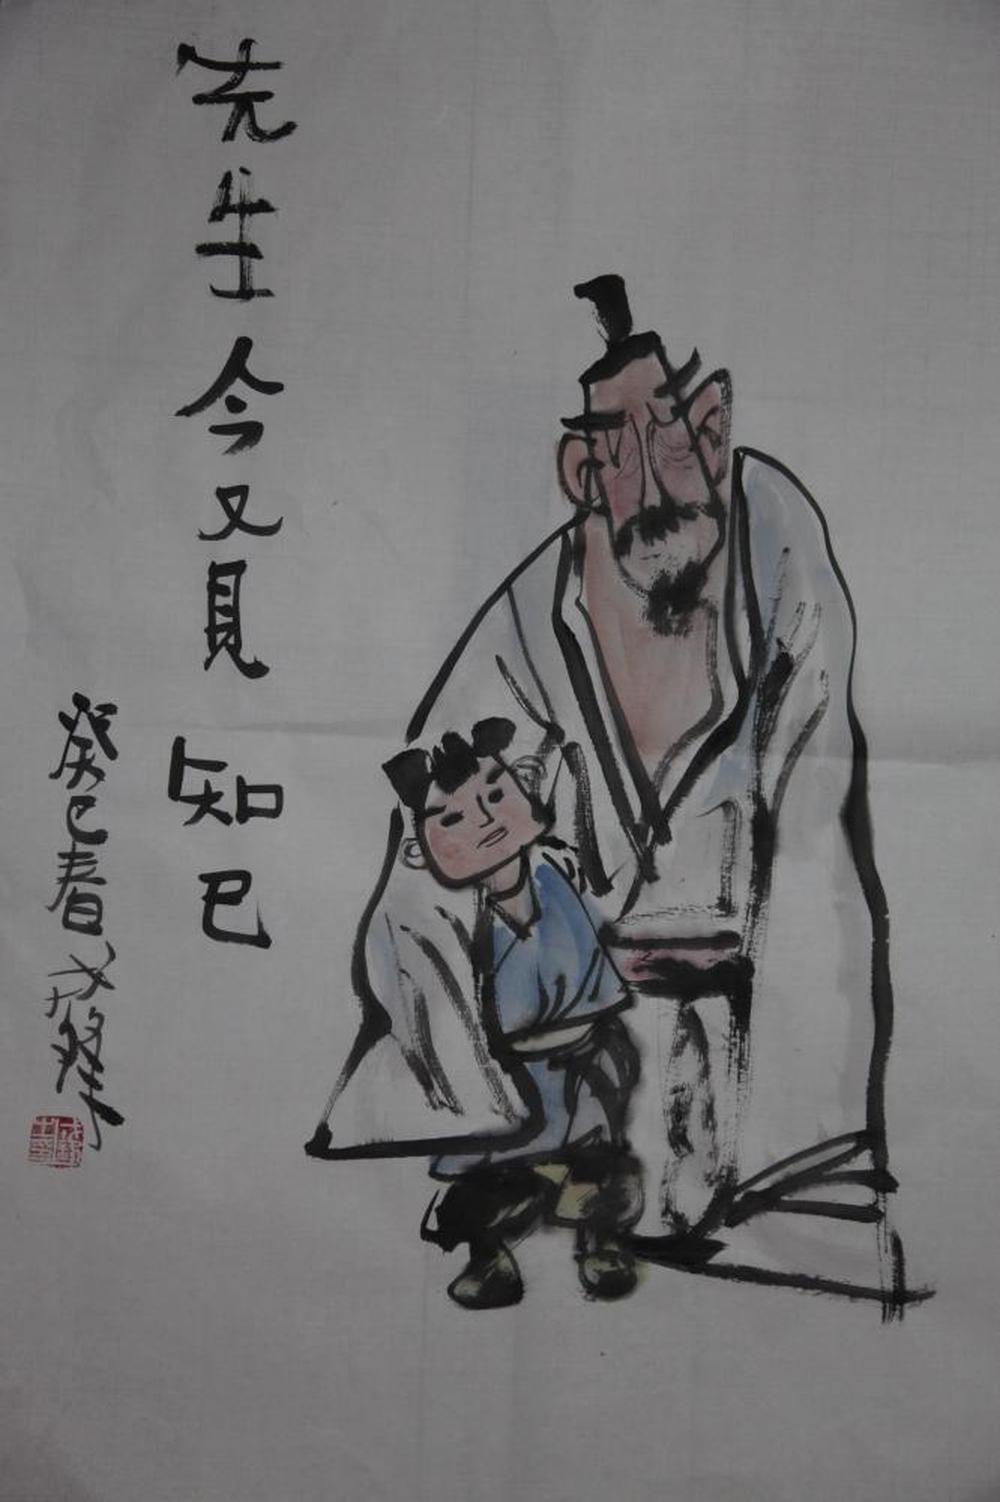 先生今又見知己
癸巳春